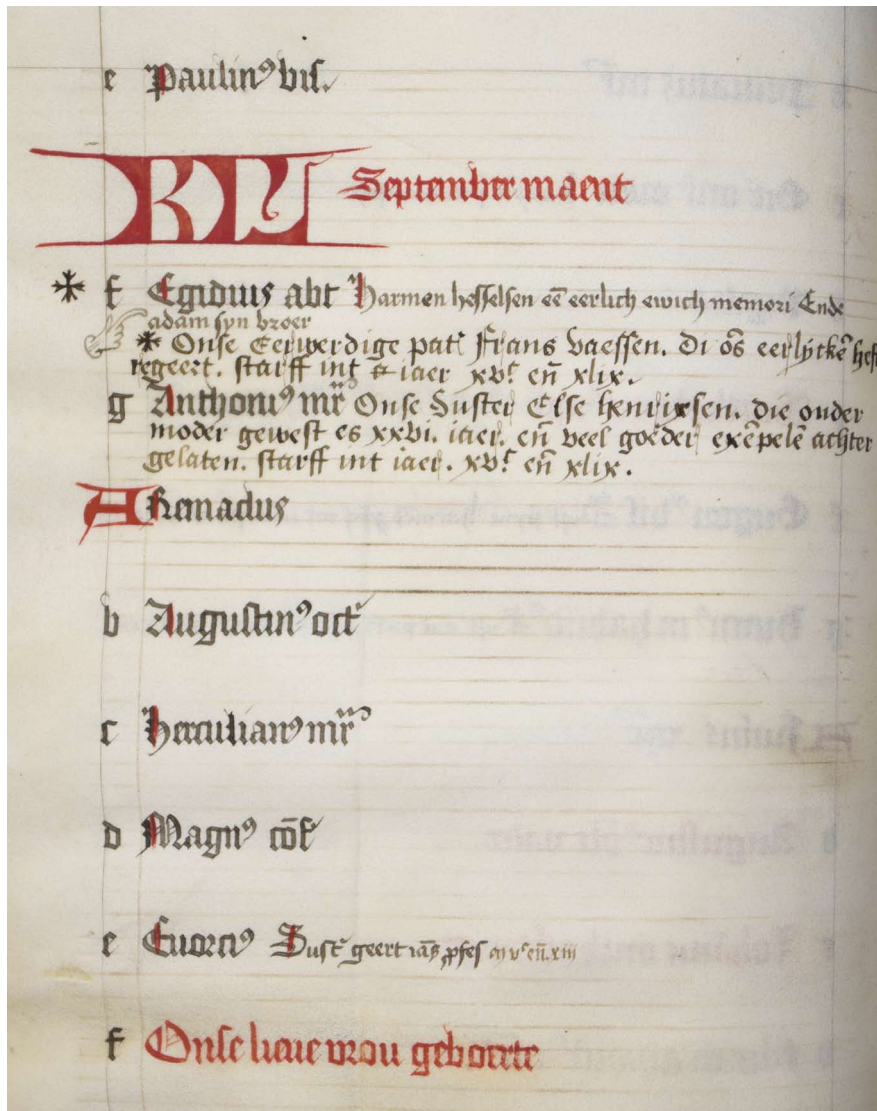 e Paulin⁹ bis.
KL September maent
f Egidius abt Harmen hesselsen eē eerlich ewich memori Ende
adam syn broer
Onse Eerwerdige pat͛ Frans vaessen. Di ōs eerlycke͂ heft
regeert. starff int iaer xvᶜ en̄ xlix.
g Anthoni⁹ mr̄ Onse Suster Else henrixsen. die ouder
moder gewest es xxvi. iaer. en̄ veel goeder exēpelē achter
gelaten. starff int iaer. xvᶜ en̄ xlix.
A Remaclus
b Augustin⁹ oct͛
c Herculian⁹ mr̄
d Magn⁹ cōf
e Euorci⁹ Sust͛ geert ꝓfes vᶜ en̄ xiii
f Onse lieue vrou geboerte